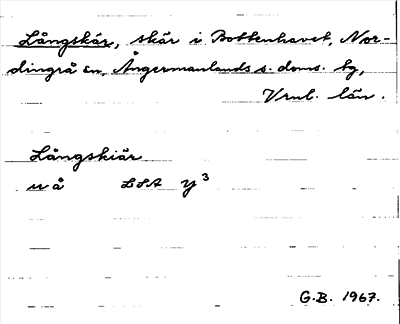 Långskär, skär i Bottenhavet, Nor-
dingrå sn, Ångermanlands s. doms. bg,
Vrnl. län.
Långskiär
u å LSA Y³
G.B. 1967.